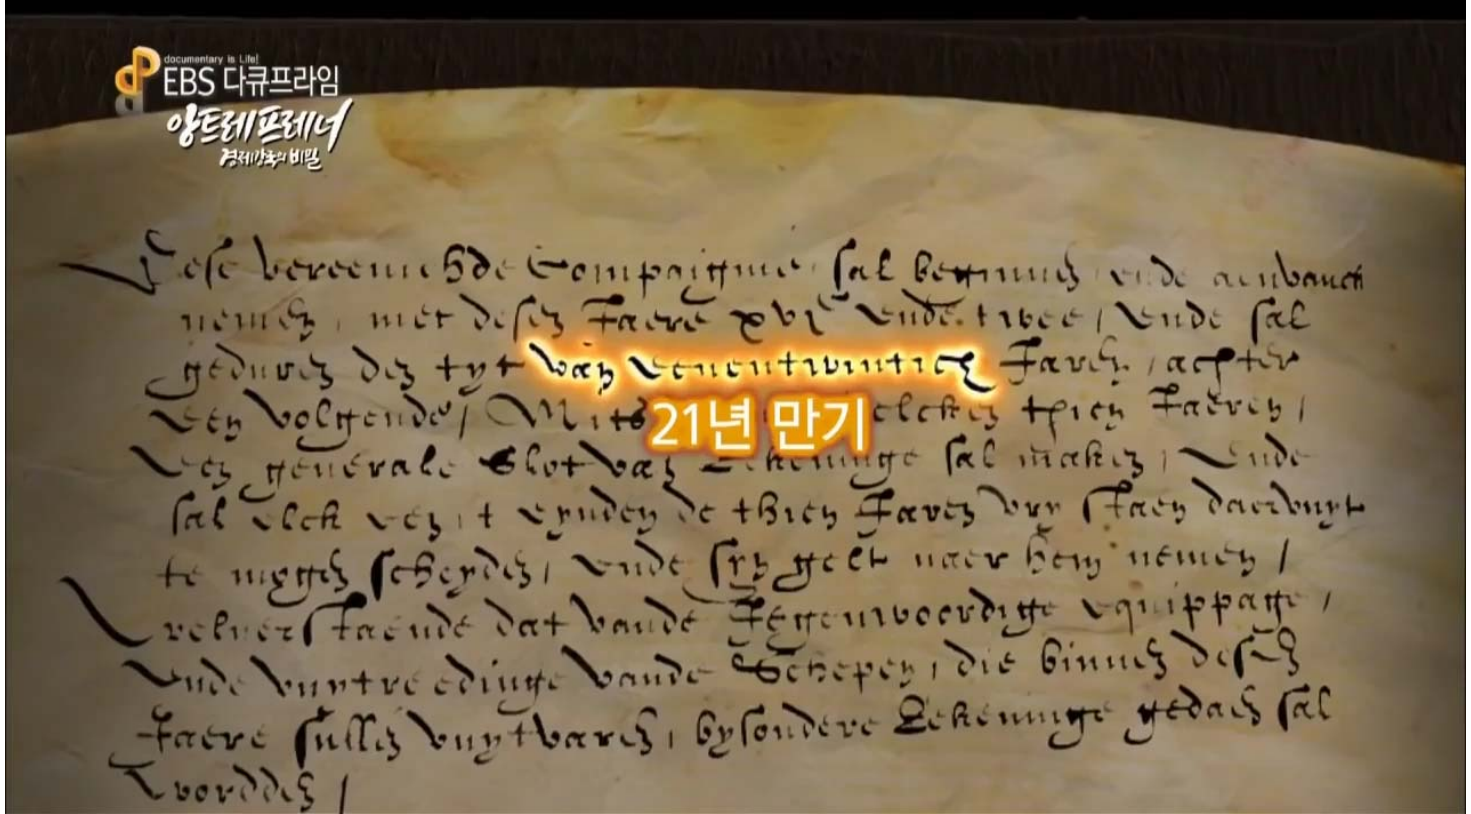 documentary is Life!
EBS 다큐프라임
앙트레프레너
경제강국의 비밀
Dese vereenichde Compaignie, sal beginnen, ende aenvanck
nemen, met desen Jaere xvjc ende twee, ende sal
geduren den tyt van eenentwintich Jaren, achter
een volgende, Mits elcken thien Jaeren,
21년 만기
een generale Slot van Rekeninge sal maken, Ende
sal elck een, t eynden de thien Jaren vry staen daervuyt
te mogen scheyden, ende syn gelt naer hem nemen,
Welverstaende dat vande Jegenwoordige equippage,
Ende vuytreedinge vande Schepen, die binnen desen
Jaere sullen vuytvaren, bysondere Rekeninge gedaen sal
Wordden,